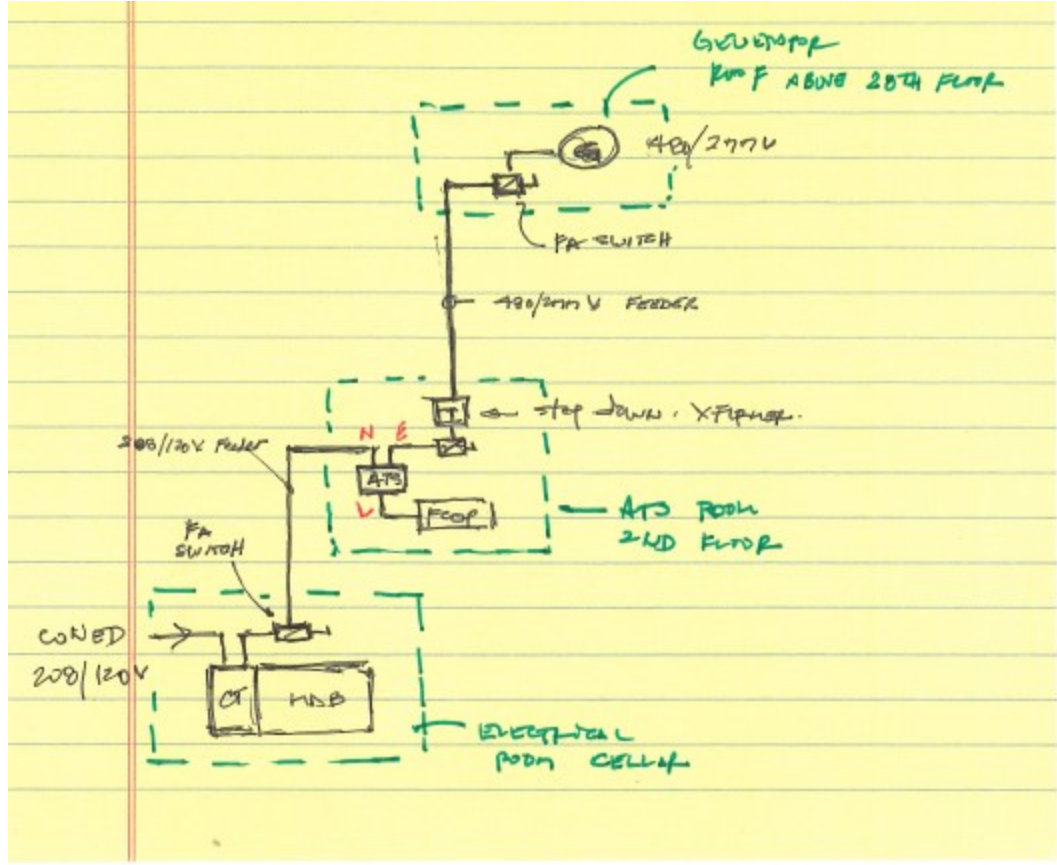 GENERATOR
ROOF ABOVE 28TH FLOOR
G
480/277V
FA SWITCH
480/277 V FEEDER
T
step down. X-FORMER.
N E
208/120V Feeder
ATS
L
FCOP
ATS ROOM
2ND FLOOR
FA
SWITCH
CONED
208/120V
CT
MDB
ELECTRICAL
ROOM CELLAR